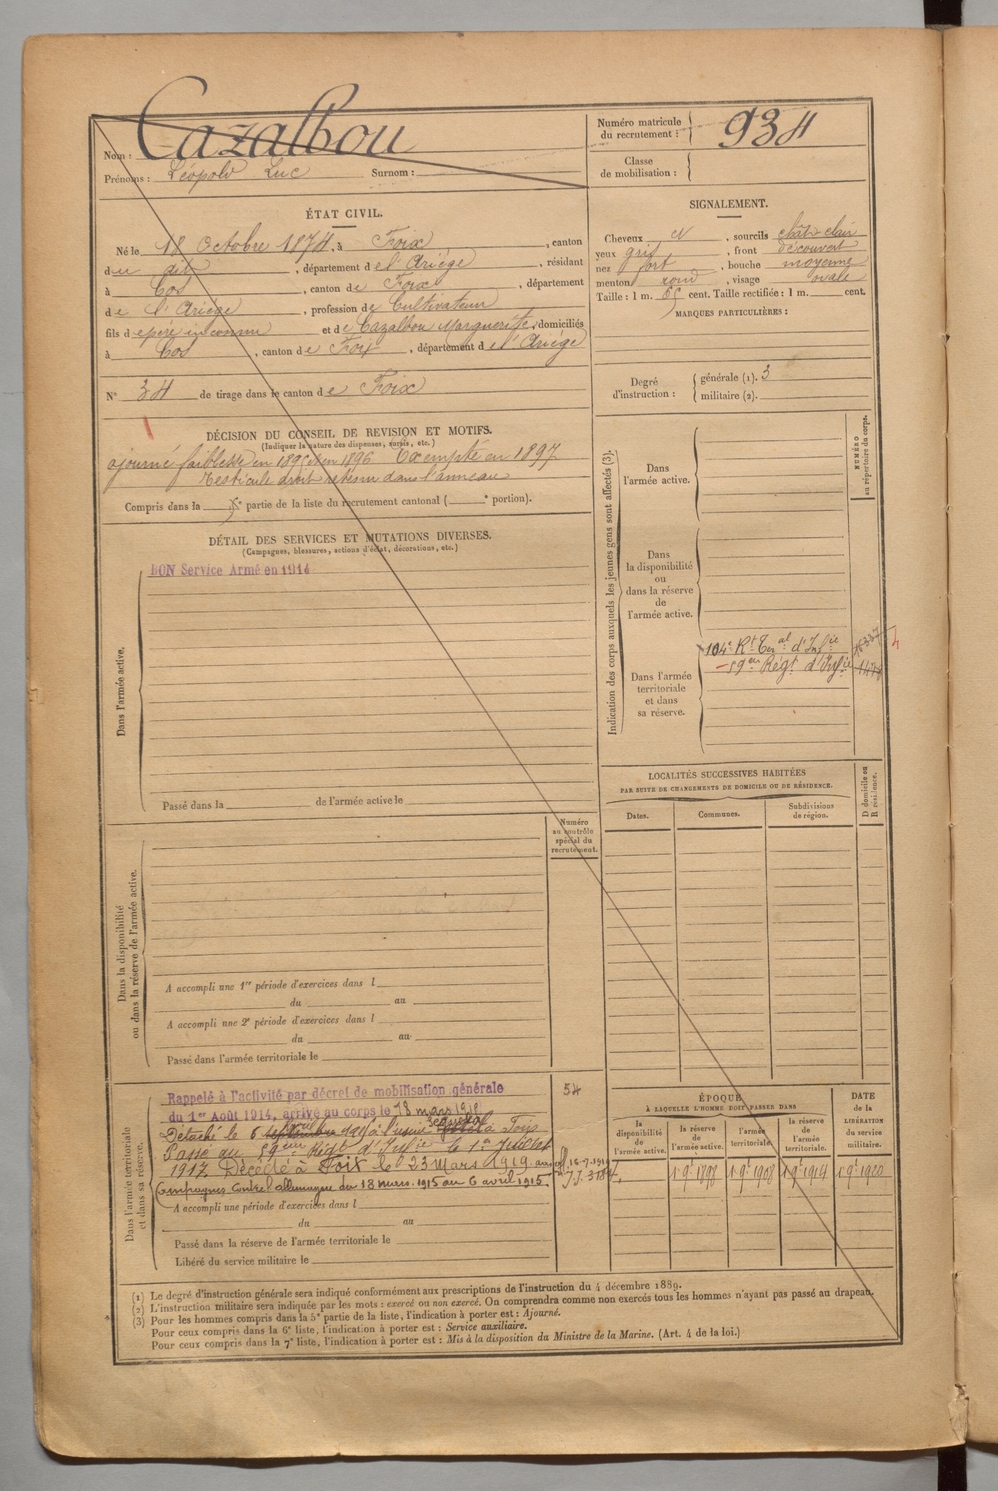 Nom : Cazalbou
Prénoms : Léopold Luc Surnom :
Numéro matricule du recrutement : 934
Classe de mobilisation :
ÉTAT CIVIL.
Né le 18 Octobre 1874, à Foix, canton
du dit, département de l'Ariége, résidant
à Cos, canton de Foix, département
de l'Ariége, profession de Cultivateur
fils de père inconnu et de Cazalbou Marguerite, domiciliés
à Cos, canton de Foix, département de l'Ariége
N° 34 de tirage dans le canton de Foix
DÉCISION DU CONSEIL DE REVISION ET MOTIFS.
(Indiquer la nature des dispenses, sursis, etc.)
ajourné faiblesse en 1895 et en 1896 Exempté en 1897
Testicule droit retenu dans l'anneau
Compris dans la e partie de la liste du recrutement cantonal ( e portion).
DÉTAIL DES SERVICES ET MUTATIONS DIVERSES.
(Campagnes, blessures, actions d'éclat, décorations, etc.)
Dans l'armée active.
BON Service Armé en 1914
Passé dans la de l'armée active le
Numéro au contrôle spécial du recrutement.
Dans la disponibilité ou dans la réserve de l'armée active.
A accompli une 1re période d'exercices dans l
du au
A accompli une 2e période d'exercices dans l
du au
Passé dans l'armée territoriale le
Dans l'armée territoriale et dans sa réserve.
Rappelé à l'activité par décret de mobilisation générale 54
du 1er Août 1914, arrivé au corps le 18 mars 1915
Détaché le 6 à l'usine à Foix
Passé au 59ème Régt d'Infie le 1er Juillet
1917. Décédé à Foix le 23 Mars 1919
Campagnes Contre l'allemagne du 18 mars 1915 au 6 avril 1915.
A accompli une période d'exercices dans l
du au
Passé dans la réserve de l'armée territoriale le
Libéré du service militaire le
SIGNALEMENT.
Cheveux, sourcils chât. clair
yeux gris, front découvert
nez fort, bouche moyenne
menton rond, visage ovale
Taille : 1 m. 65 cent. Taille rectifiée : 1 m. cent.
MARQUES PARTICULIÈRES :
Degré d'instruction : générale (1). 3
militaire (2).
Indication des corps auxquels les jeunes gens sont affectés (3).
NUMÉRO au répertoire du corps.
Dans l'armée active.
Dans la disponibilité ou dans la réserve de l'armée active.
Dans l'armée territoriale et dans sa réserve.
104e Rt Teral d'Infie
59ème Régt d'Infie
LOCALITÉS SUCCESSIVES HABITÉES
PAR SUITE DE CHANGEMENTS DE DOMICILE OU DE RÉSIDENCE.
Dates. Communes. Subdivisions de région. D domicile ou R résidence.
ÉPOQUE
À LAQUELLE L'HOMME DOIT PASSER DANS
la disponibilité de l'armée active.
la réserve de l'armée active.
l'armée territoriale.
la réserve de l'armée territoriale.
DATE de la LIBÉRATION du service militaire.
1 9e 1898 1 9e 1908 1 9e 1914 1 9e 1920
(1) Le degré d'instruction générale sera indiqué conformément aux prescriptions de l'instruction du 4 décembre 1889.
(2) L'instruction militaire sera indiquée par les mots : exercé ou non exercé. On comprendra comme non exercés tous les hommes n'ayant pas passé au drapeau.
(3) Pour les hommes compris dans la 5e partie de la liste, l'indication à porter est : Ajourné.
Pour ceux compris dans la 6e liste, l'indication à porter est : Service auxiliaire.
Pour ceux compris dans la 7e liste, l'indication à porter est : Mis à la disposition du Ministre de la Marine. (Art. 4 de la loi.)